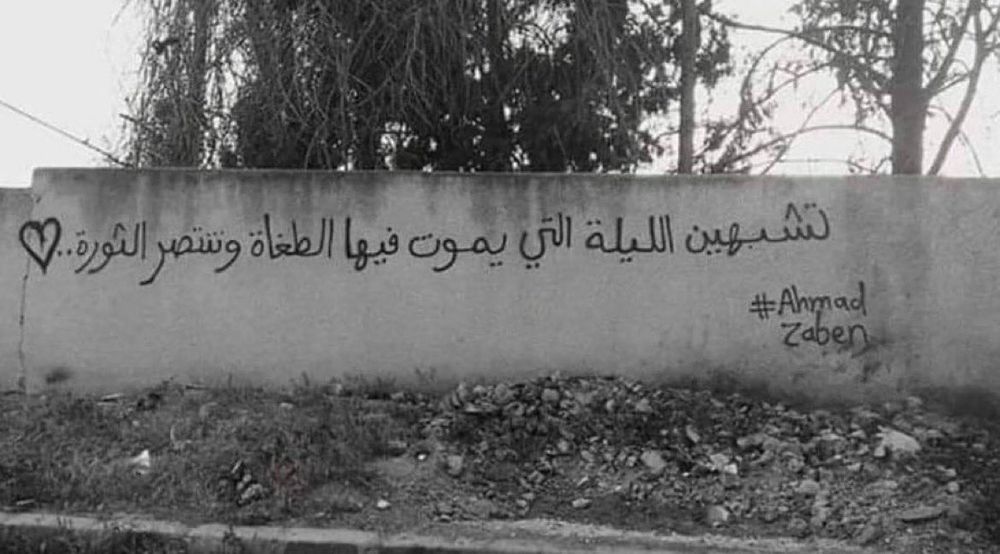 تشبهين الليلة التي يموت فيها الطغاة وتنتصر الثورة..
#Ahmad
Zaben